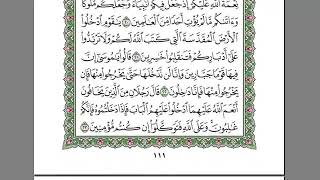 نِعْمَةَ اللَّهِ عَلَيْكُمْ إِذْ جَعَلَ فِيكُمْ أَنبِيَاءَ وَجَعَلَكُم مُّلُوكًا
وَءَاتَىٰكُم مَّا لَمْ يُؤْتِ أَحَدًا مِّنَ الْعَٰلَمِينَ ۝٢٠ يَٰقَوْمِ ادْخُلُوا
الْأَرْضَ الْمُقَدَّسَةَ الَّتِي كَتَبَ اللَّهُ لَكُمْ وَلَا تَرْتَدُّوا
عَلَىٰ أَدْبَارِكُمْ فَتَنقَلِبُوا خَٰسِرِينَ ۝٢١ قَالُوا يَٰمُوسَىٰ إِنَّ
فِيهَا قَوْمًا جَبَّارِينَ وَإِنَّا لَن نَّدْخُلَهَا حَتَّىٰ يَخْرُجُوا مِنْهَا فَإِن
يَخْرُجُوا مِنْهَا فَإِنَّا دَٰخِلُونَ ۝٢٢ قَالَ رَجُلَانِ مِنَ الَّذِينَ يَخَافُونَ
أَنْعَمَ اللَّهُ عَلَيْهِمَا ادْخُلُوا عَلَيْهِمُ الْبَابَ فَإِذَا دَخَلْتُمُوهُ فَإِنَّكُمْ
غَٰلِبُونَ وَعَلَى اللَّهِ فَتَوَكَّلُوا إِن كُنتُم مُّؤْمِنِينَ ۝٢٣
١١١